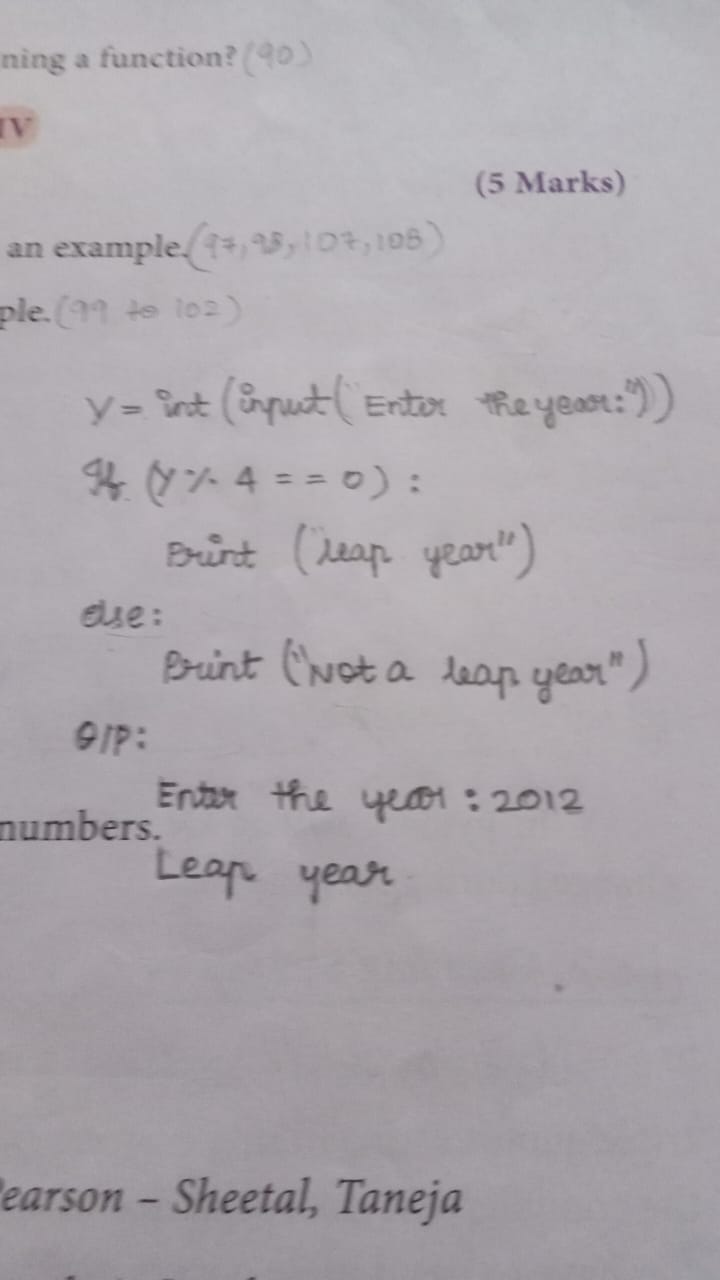 ning a function? (90)
IV
(5 Marks)
an example. (97,98,107,108)
ple. (99 to 102)
y = int (input ("Enter the year:"))
If (y % 4 == 0) :
Print ("leap year")
else:
Print ("Not a leap year")
O/P:
Enter the year : 2012
numbers.
Leap year
Pearson – Sheetal, Taneja